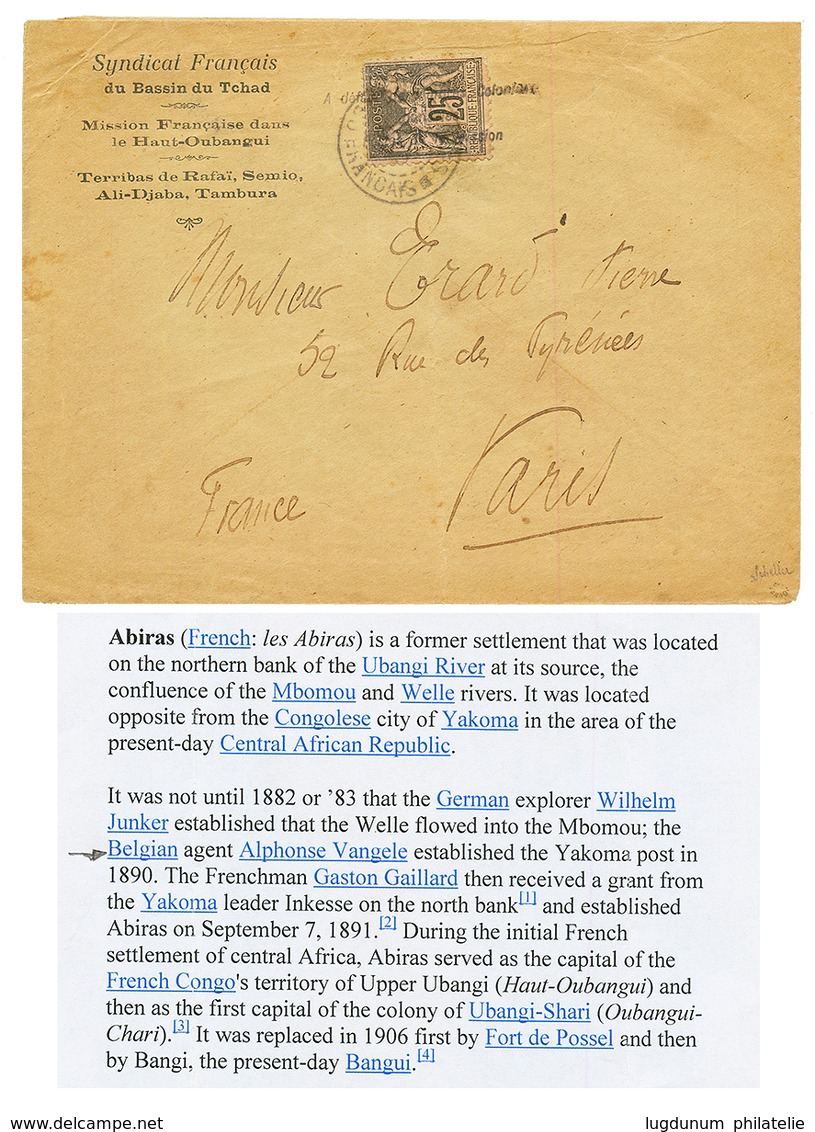 Syndicat Français
du Bassin du Tchad
Mission Française dans
le Haut-Oubangui
Terribas de Rafaï, Semio,
Ali-Djaba, Tambura
A défaut Coloniaux
mission
POSTES 25 REPUBLIQUE FRANÇAISE
FRANCAIS
Monsieur Erard Pierre
52 Rue des Pyrénées
Paris
France
Abiras (French: les Abiras) is a former settlement that was located
on the northern bank of the Ubangi River at its source, the
confluence of the Mbomou and Welle rivers. It was located
opposite from the Congolese city of Yakoma in the area of the
present-day Central African Republic.
It was not until 1882 or ’83 that the German explorer Wilhelm
Junker established that the Welle flowed into the Mbomou; the
Belgian agent Alphonse Vangele established the Yakoma post in
1890. The Frenchman Gaston Gaillard then received a grant from
the Yakoma leader Inkesse on the north bank[1] and established
Abiras on September 7, 1891.[2] During the initial French
settlement of central Africa, Abiras served as the capital of the
French Congo's territory of Upper Ubangi (Haut-Oubangui) and
then as the first capital of the colony of Ubangi-Shari (Oubangui-
Chari).[3] It was replaced in 1906 first by Fort de Possel and then
by Bangi, the present-day Bangui.[4]
www.delcampe.net
lugdunum philatelie